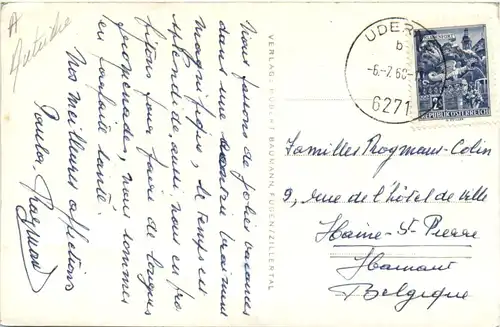 A
Autriche
Nous passons de jolies vacances
dans une contrée vraiment
magnifique, le temps est
splendide aussi nous en pro
fitons pour faire de longues
promenades, nous sommes
en parfaite santé.
Nos meilleures affections
Raymans
VERLAG: HUBERT BAUMANN, FÜGEN/ZILLERTAL
UDERNS
b
-6.-7.68-
6271
2
REPUBLIK ÖSTERREICH
Familles Raymans-Colin
9, rue de l'hôtel de ville
Haine-St-Pierre
Hainaut
Belgique